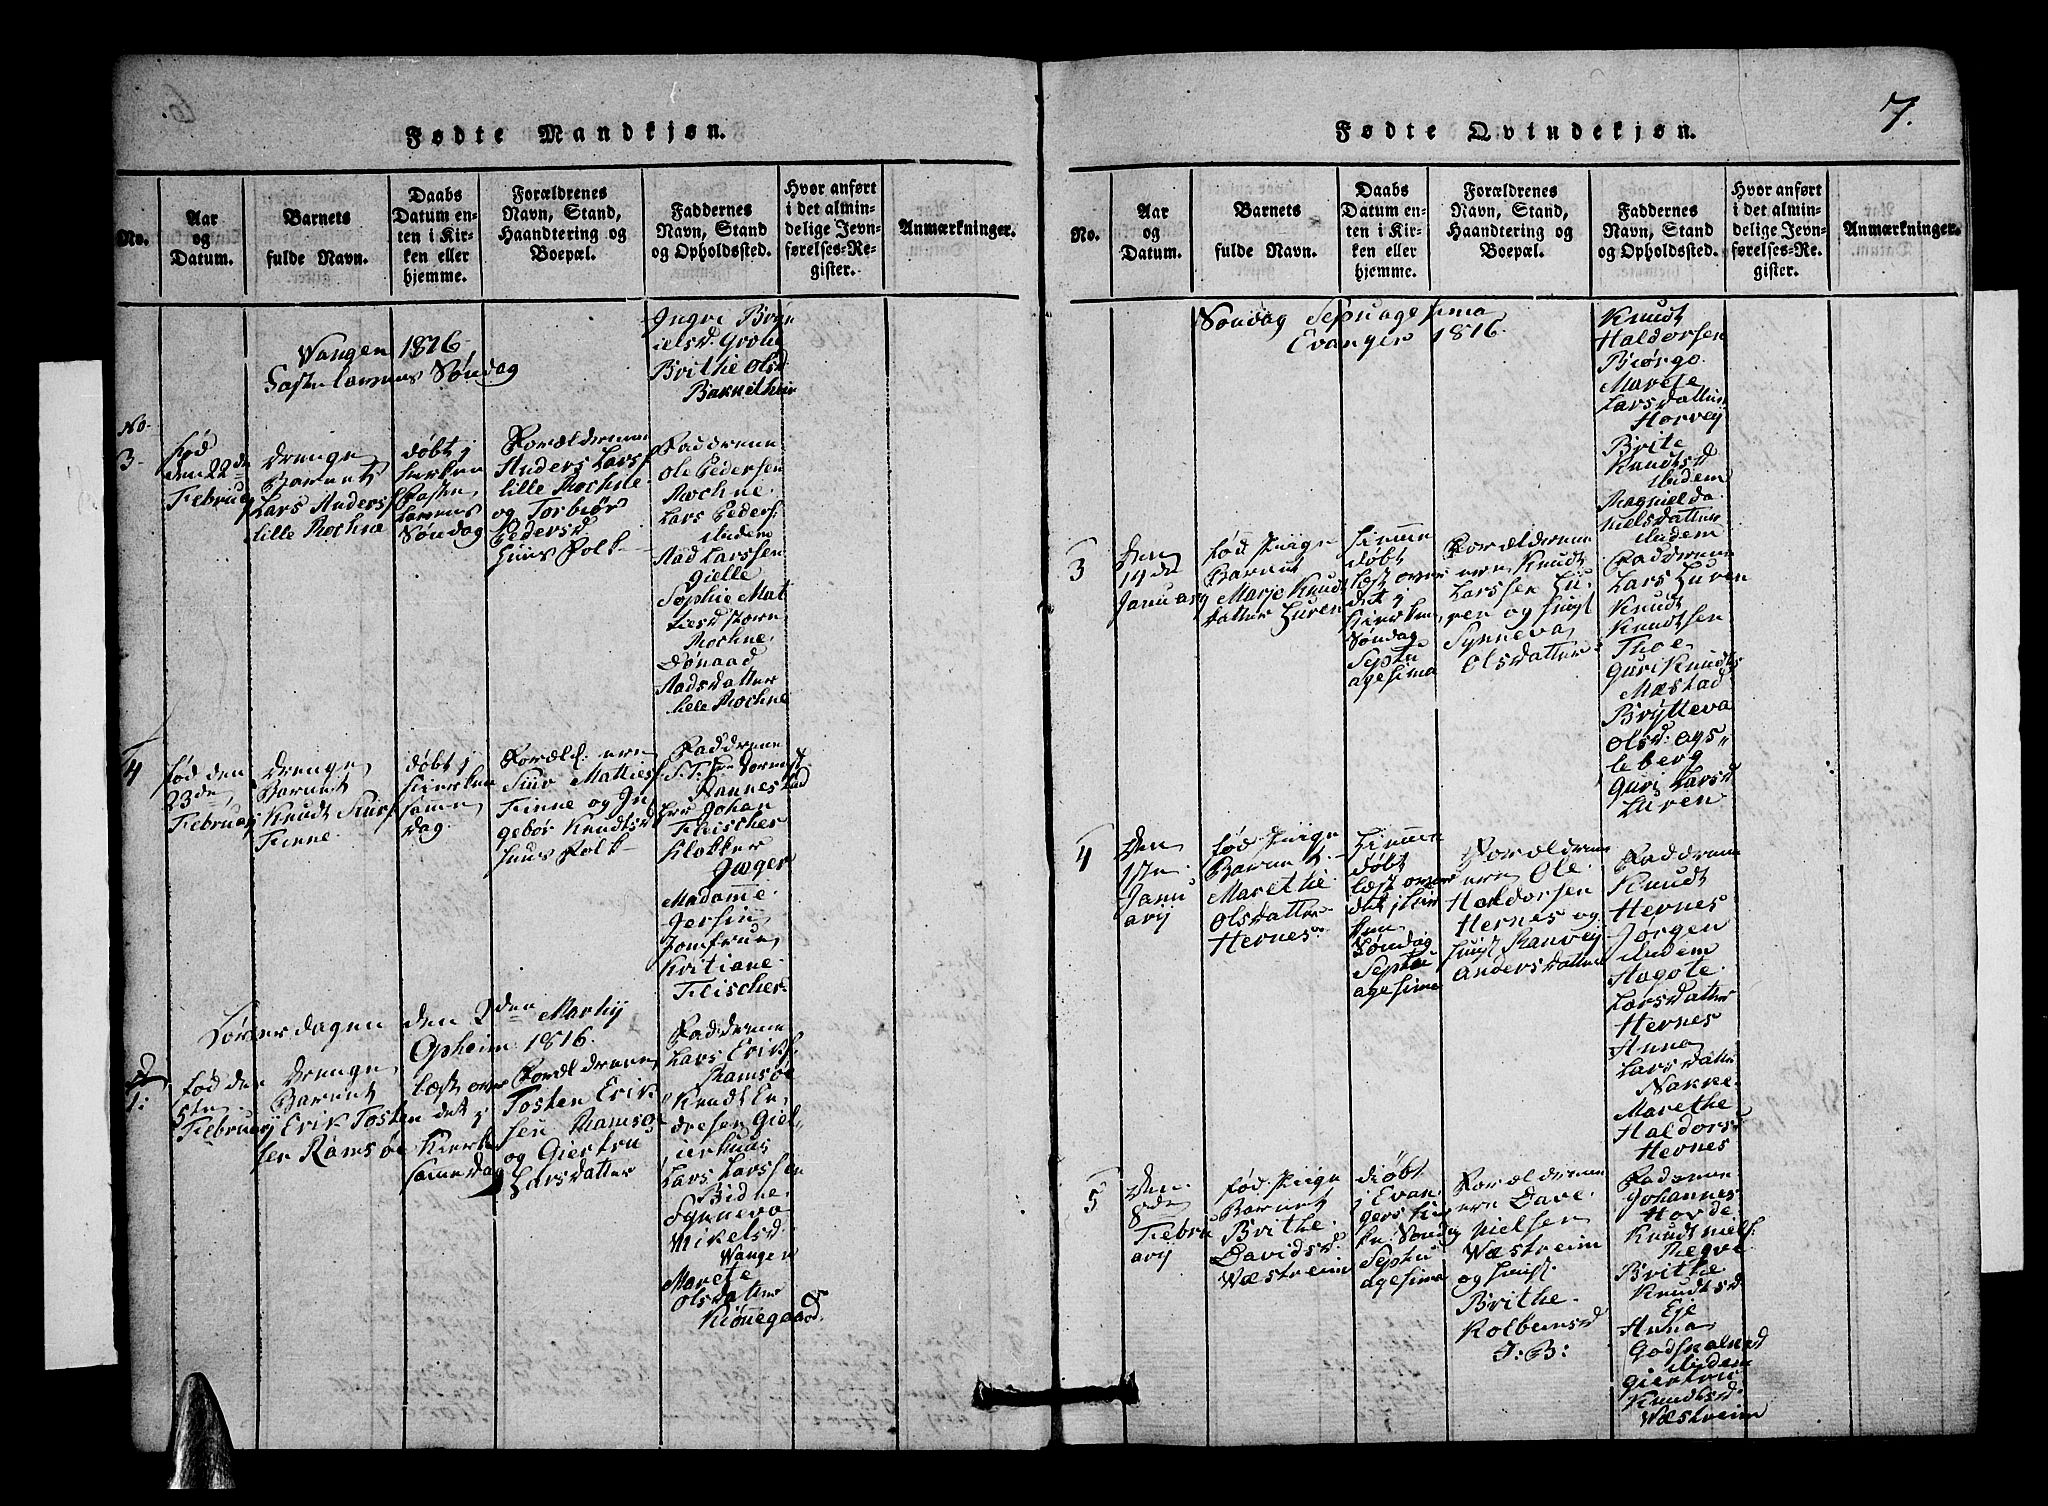 Fødte Mandkjøn.
No.
Aar
og
Datum.
Barnets
fulde Navn.
Daabs
Datum en-
ten i Kir-
ken eller
hjemme.
Forældrenes
Navn, Stand,
Haandtering og
Boepæl.
Faddernes
Navn, Stand
og Opholdssted.
Hvor anført
i det almin-
delige Jevn-
førelses-Re-
gister.
Anmærkninger.
Wangen 1816
Fastelavens Søndag
Ingri Bryn
ielsd. Grove
Brithe Olsd
Bakkethun
No.
3
fød
den 22de
Februarij
Drenge
Barnet
Lars Andersf
lille Mochne
døbt j
kirken
Faste
lavens
Søndag
Forældrerne
Anders Larsf
lille Mochne
og Torbiør
Pedersd
huus Folk
Faddrene
Ole Pedersen
Mochne
Lars Pedersf
ibidem
Aad Larssen
Gielle
Sophie Mat
tiesd Store
Mochne
Dønaad
Aadsdatter
lille Mochne
4
fød den
23de
Februarij
Drenge
Barnet
Knudt Siursf
Finne
døbt j
kierken
samme
dag.
Foreld. ere
Siur Mathiesf
Finne og In
gebør Knudtsd
huus Folk
Faddrene
S. T. Hr
Rannestad
Hr Johan
Fleischer
Klokker
Jæger
Madamme
Jersin
Jomfrue
Kritiane
Fleischer
Løverdagen den 2den Martij
Opheim 1816.
1:
fød den
5te
Februarij
Drenge
Barnet
Erik Tosten
sen Ramsøe
læst over
det j
Kierke
samme dag
Forældrene
Tosten Erik
sen Ramsø
og Giertru
Larsdatter
Faddrene
Lars Eriksf
Ramsøe
Knudt En
dresen Giel
ierhuus
Lars Larssen
Bidne
Synneva
Mikelsd
Wangen
Marete
Olsdatter
Kiønegaard.
Fødte Qvindekjøn.
7.
No.
Aar
og
Datum.
Barnets
fulde Navn.
Daabs
Datum en-
ten i Kir-
ken eller
hjemme.
Forældrenes
Navn, Stand,
Haandtering og
Boepæl.
Faddernes
Navn, Stand
og Opholdssted.
Hvor anført
i det almin-
delige Jevn-
førelses-Re-
gister.
Anmærkninger.
Søndag Septuagesima
Evanger 1816.
Knudt
Haldorsen
Biørgo
Marete
Larsdatter
Horvej
Brite
Knudtsd
ibidem
Magnilda
Nielsdatter
ibidem
3
Den
14de
Januarij
fød Piige
Barnet
Marje Knudt
datter Luren
hiemme
døbt
læst over
det j
kierken
Søndag
Septu
agesima
Forældrerne
ere Knudt
Larssen Lu
ren og hust
Synneva
Olsdatter
Faddrene
Lars Luren
Knudt
Knudtsen
Thoe
Guri Knudts
Mæstad
Brytteva
Olsd. Ags
leberg
Guri Larsd
Luren
4
Den
17de
Janu
arij
fød Piige
Barnet
Marethe
Olsdatter
Hernes
hiemme
døbt
læst over
det j kir
ken
Søndag
Septu
agesima
Forældrene
ere Ole
Haldorsen
Hernes og
hust Ranvej
Andersdatter
Faddrene
Knudt
Hernes
Jorgen
ibidem
Hagote
Larsdatter
Hernes
Anna
Larsdatter
Nakke
Marethe
Haldorsd
Hernes
5
Den
8de
Febru
arij
fød Piige
Barnet
Brithe
Davidsd.
Wæstreim
diøbt
j Evan
gers kir
ke Søndag
Septu
agesima
Forældrerne
ere Dave
Nielsen
Wæstreim
og hust.
Brithe
Kolbensd
J: B:
Fadrene
Johannes
Horde
Knudt Nielsf.
Megve
Brithe
Knudtsd
Eje
Anna
Godskalksd
ibidem
Giertru
Knudtsd
Wæstreim